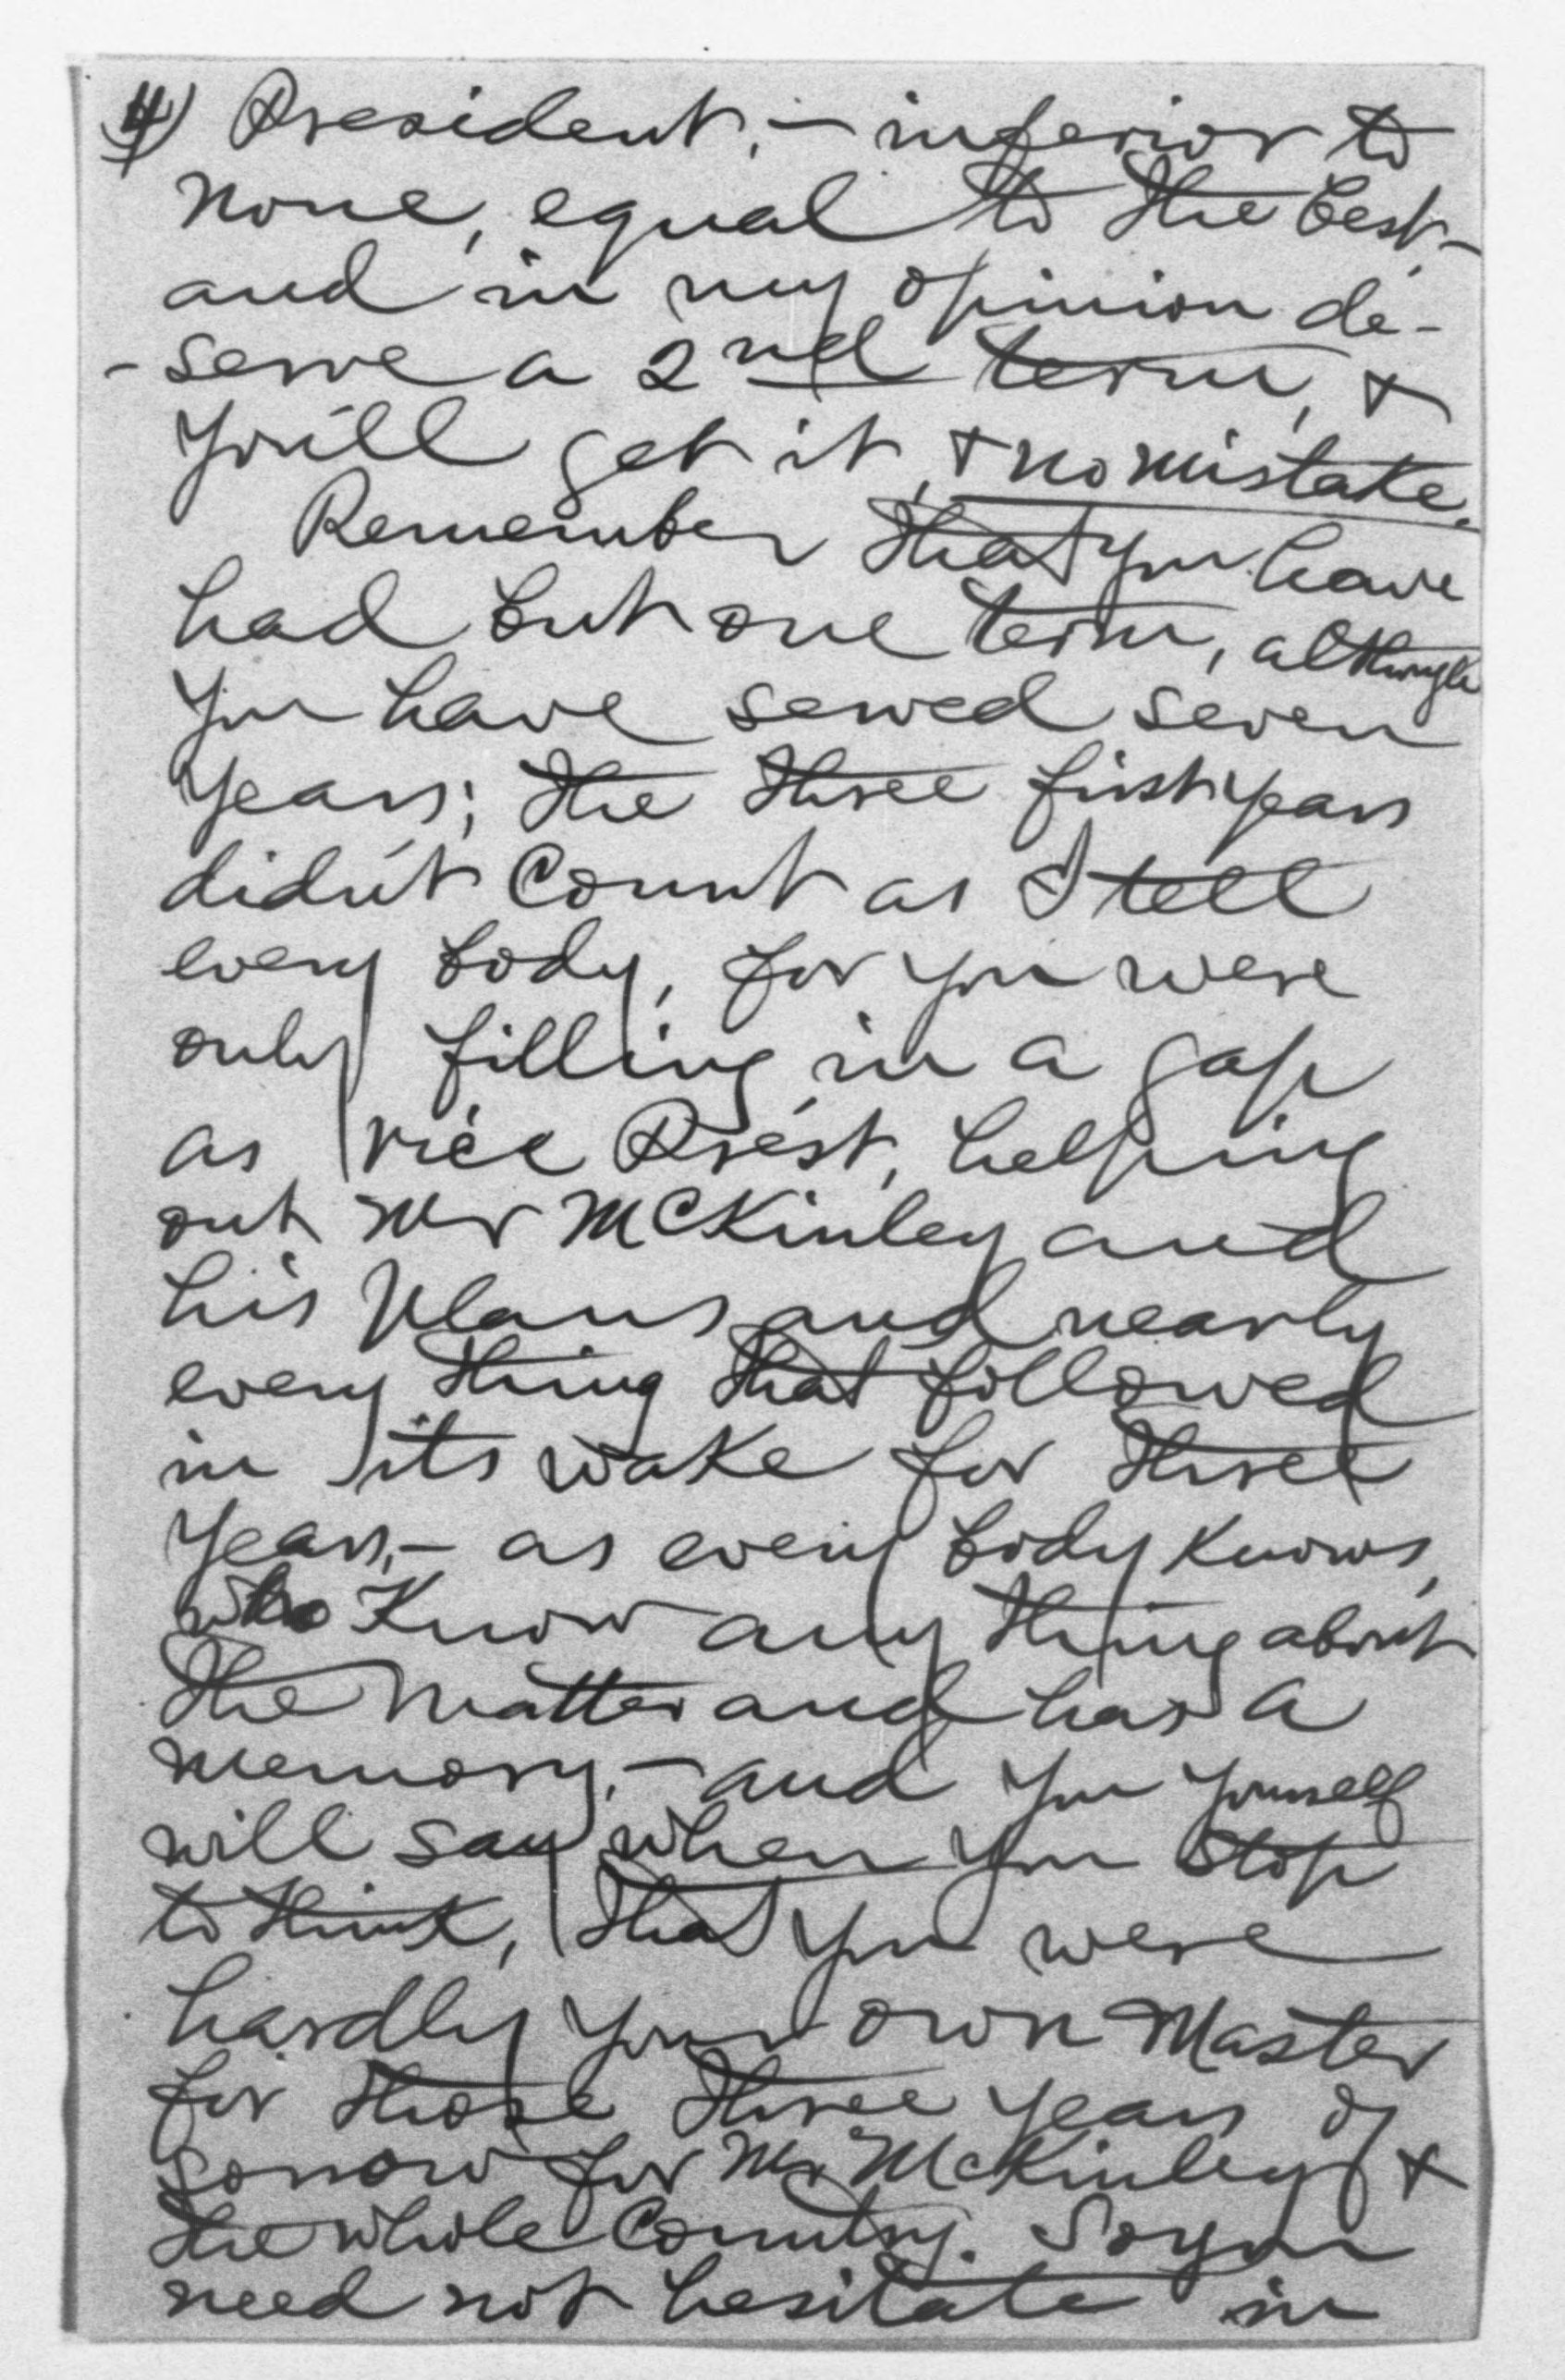 4) President, – inferior to
none, equal to the best –
and in my opinion de-
-serve a 2nd term, &
you'll get it, & no mistake.
Remember that you have
had but one term, although
you have served seven
years; the three first years
didn't count as I tell
every body, for you were
only filling in a gap
as vice Prest, helping
out Mr McKinley and
his plans and nearly
every thing that followed
in its wake for three
years, – as every body knows,
who know any thing about
the matter and has a
memory, – and you yourself
will say when you stop
to think, that you were
hardly your own master
for those three years of
sorrow for Mr McKinley &
the whole Country. So you
need not hesitate in